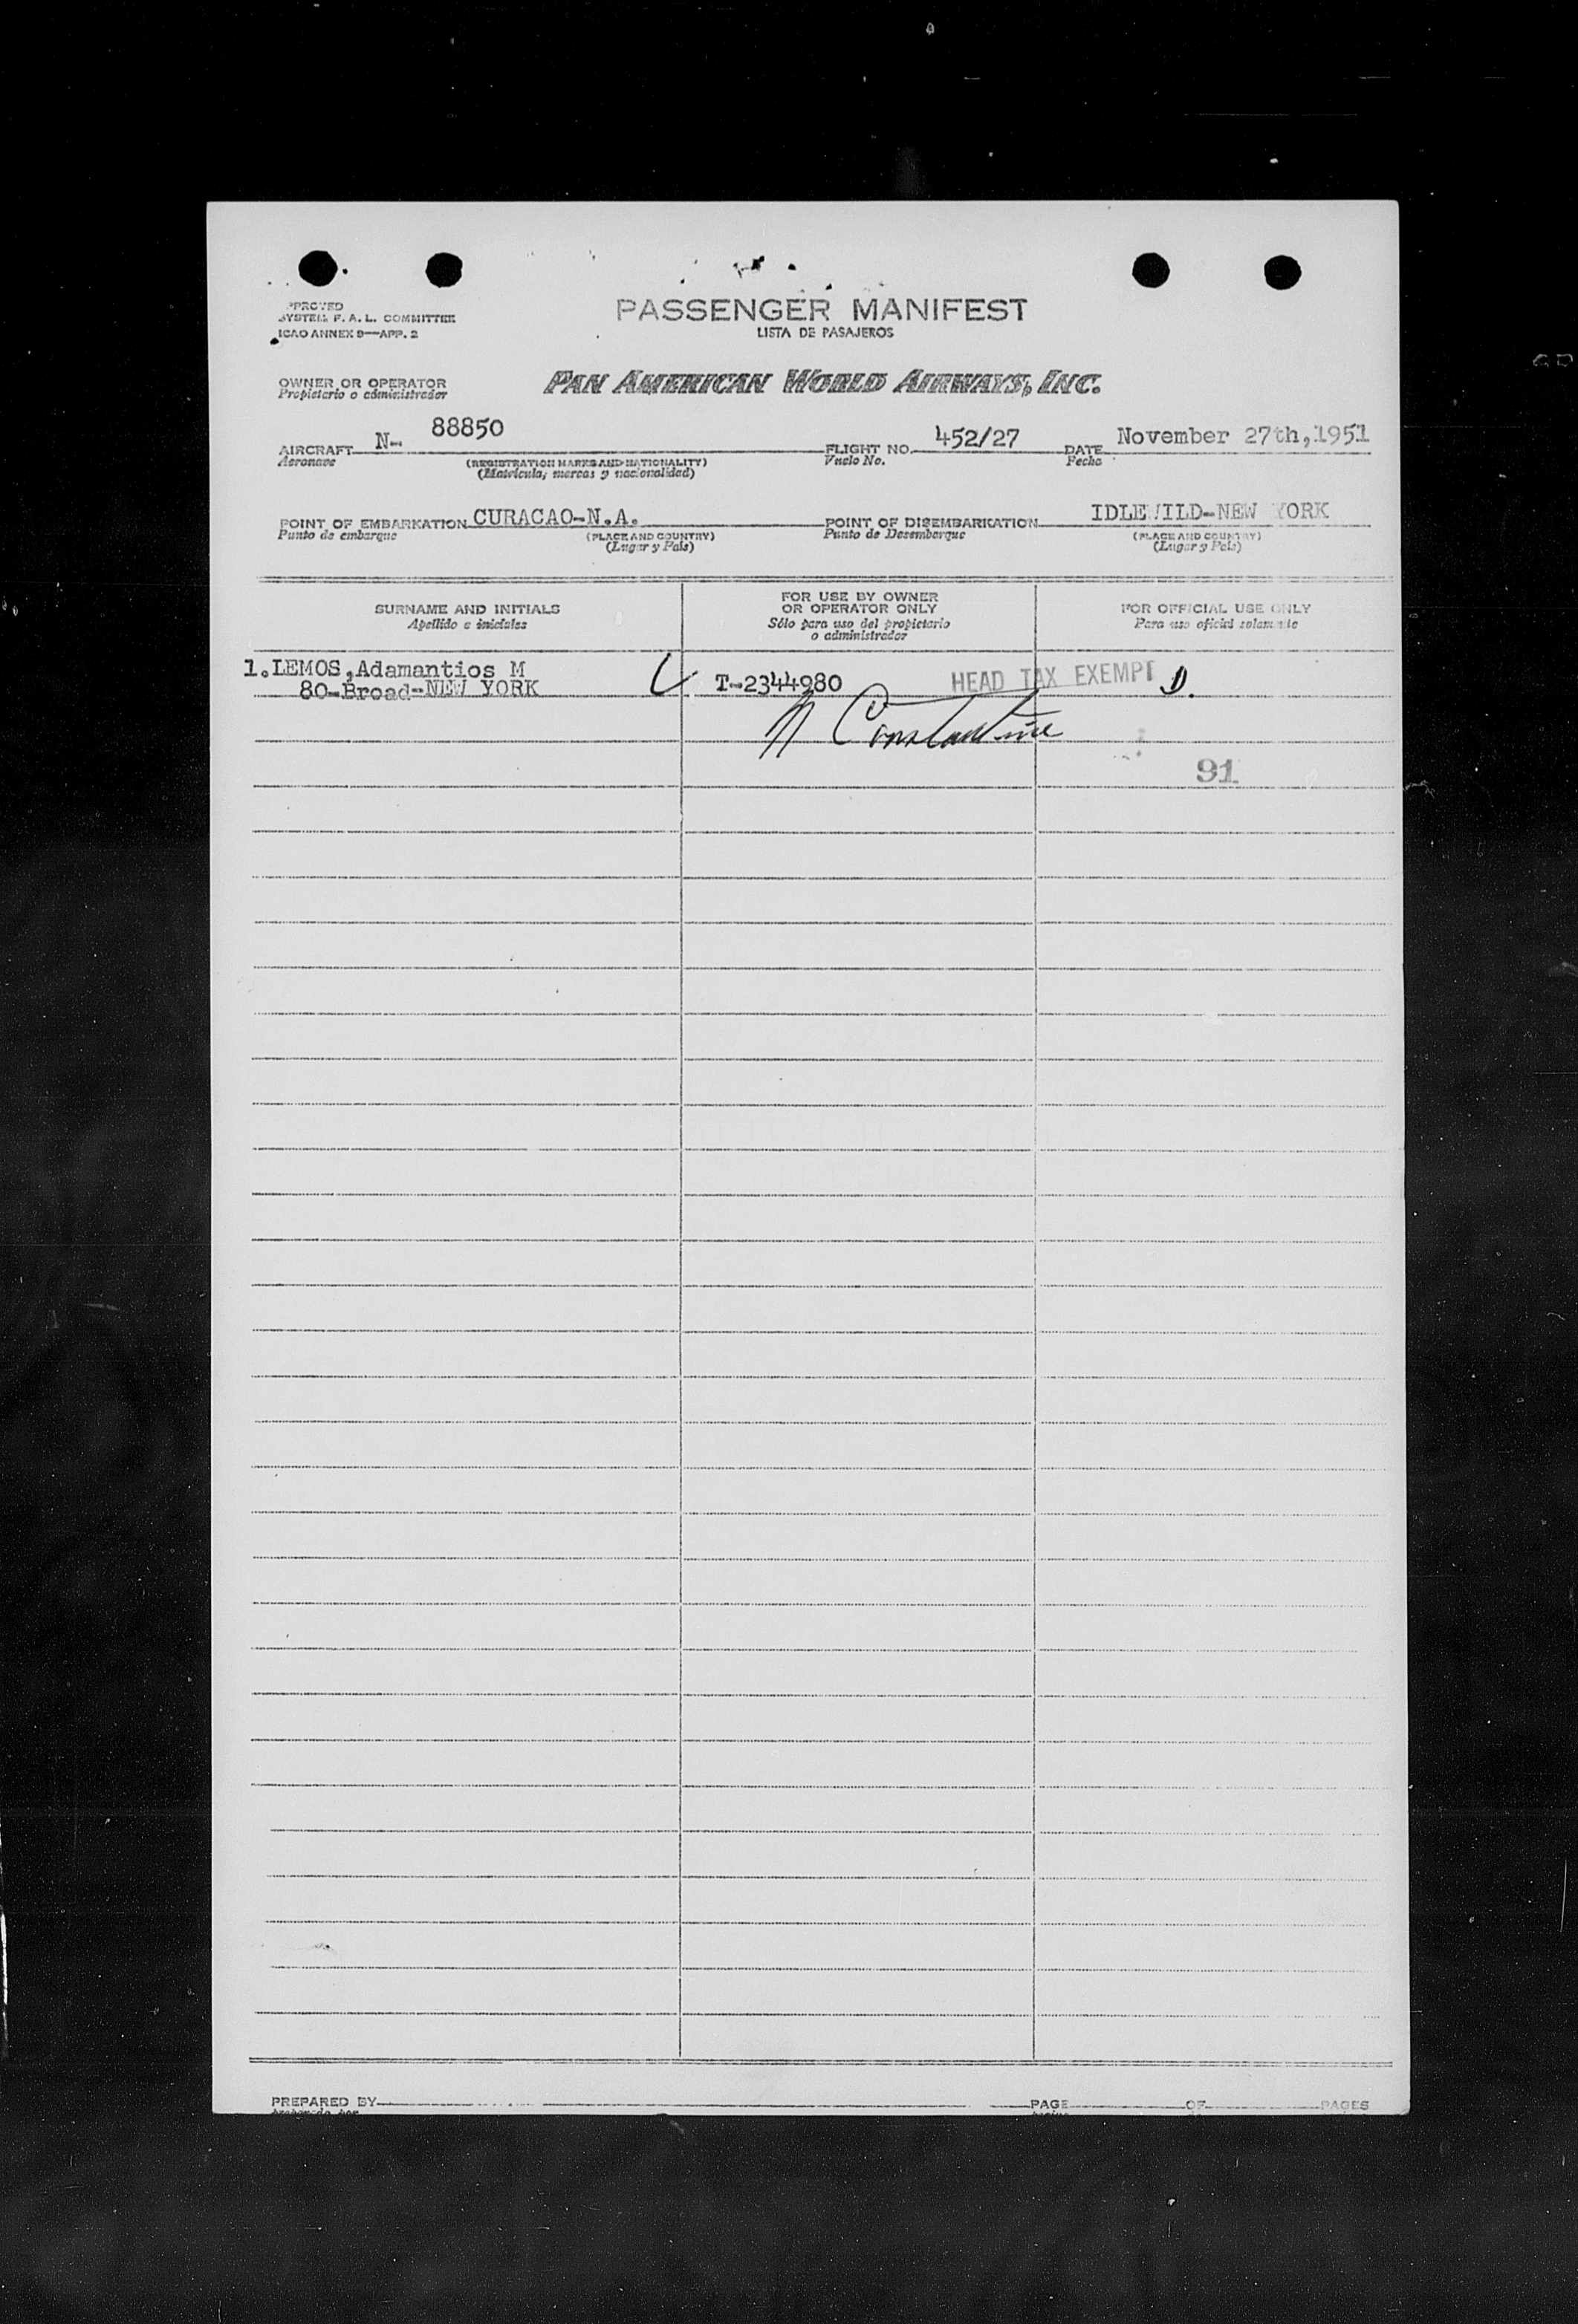 PPROVED
SYSTEM F. A. L. COMMITTEE
ICAO ANNEX 9—APP. 2
PASSENGER MANIFEST
LISTA DE PASAJEROS
OWNER OR OPERATOR
Propietario o administrador
PAN AMERICAN WORLD AIRWAYS, INC.
AIRCRAFT N- 88850 FLIGHT NO. 452/27 DATE November 27th,1951
Aeronave (REGISTRATION MARKS AND NATIONALITY) Vuelo No. Fecha
(Matrícula, marcas y nacionalidad)
POINT OF EMBARKATION CURACAO-N.A. POINT OF DISEMBARKATION IDLEWILD-NEW YORK
Punto de embarque (PLACE AND COUNTRY) Punto de Desembarque (PLACE AND COUNTRY)
(Lugar y País) (Lugar y País)
SURNAME AND INITIALS
Apellido e iniciales
FOR USE BY OWNER
OR OPERATOR ONLY
Sólo para uso del propietario
o administrador
FOR OFFICIAL USE ONLY
Para uso oficial solamente
1.LEMOS,Adamantios M T-2344980 HEAD TAX EXEMPT D.
80-Broad-NEW YORK
N Constantine
91
PREPARED BY PAGE OF PAGES